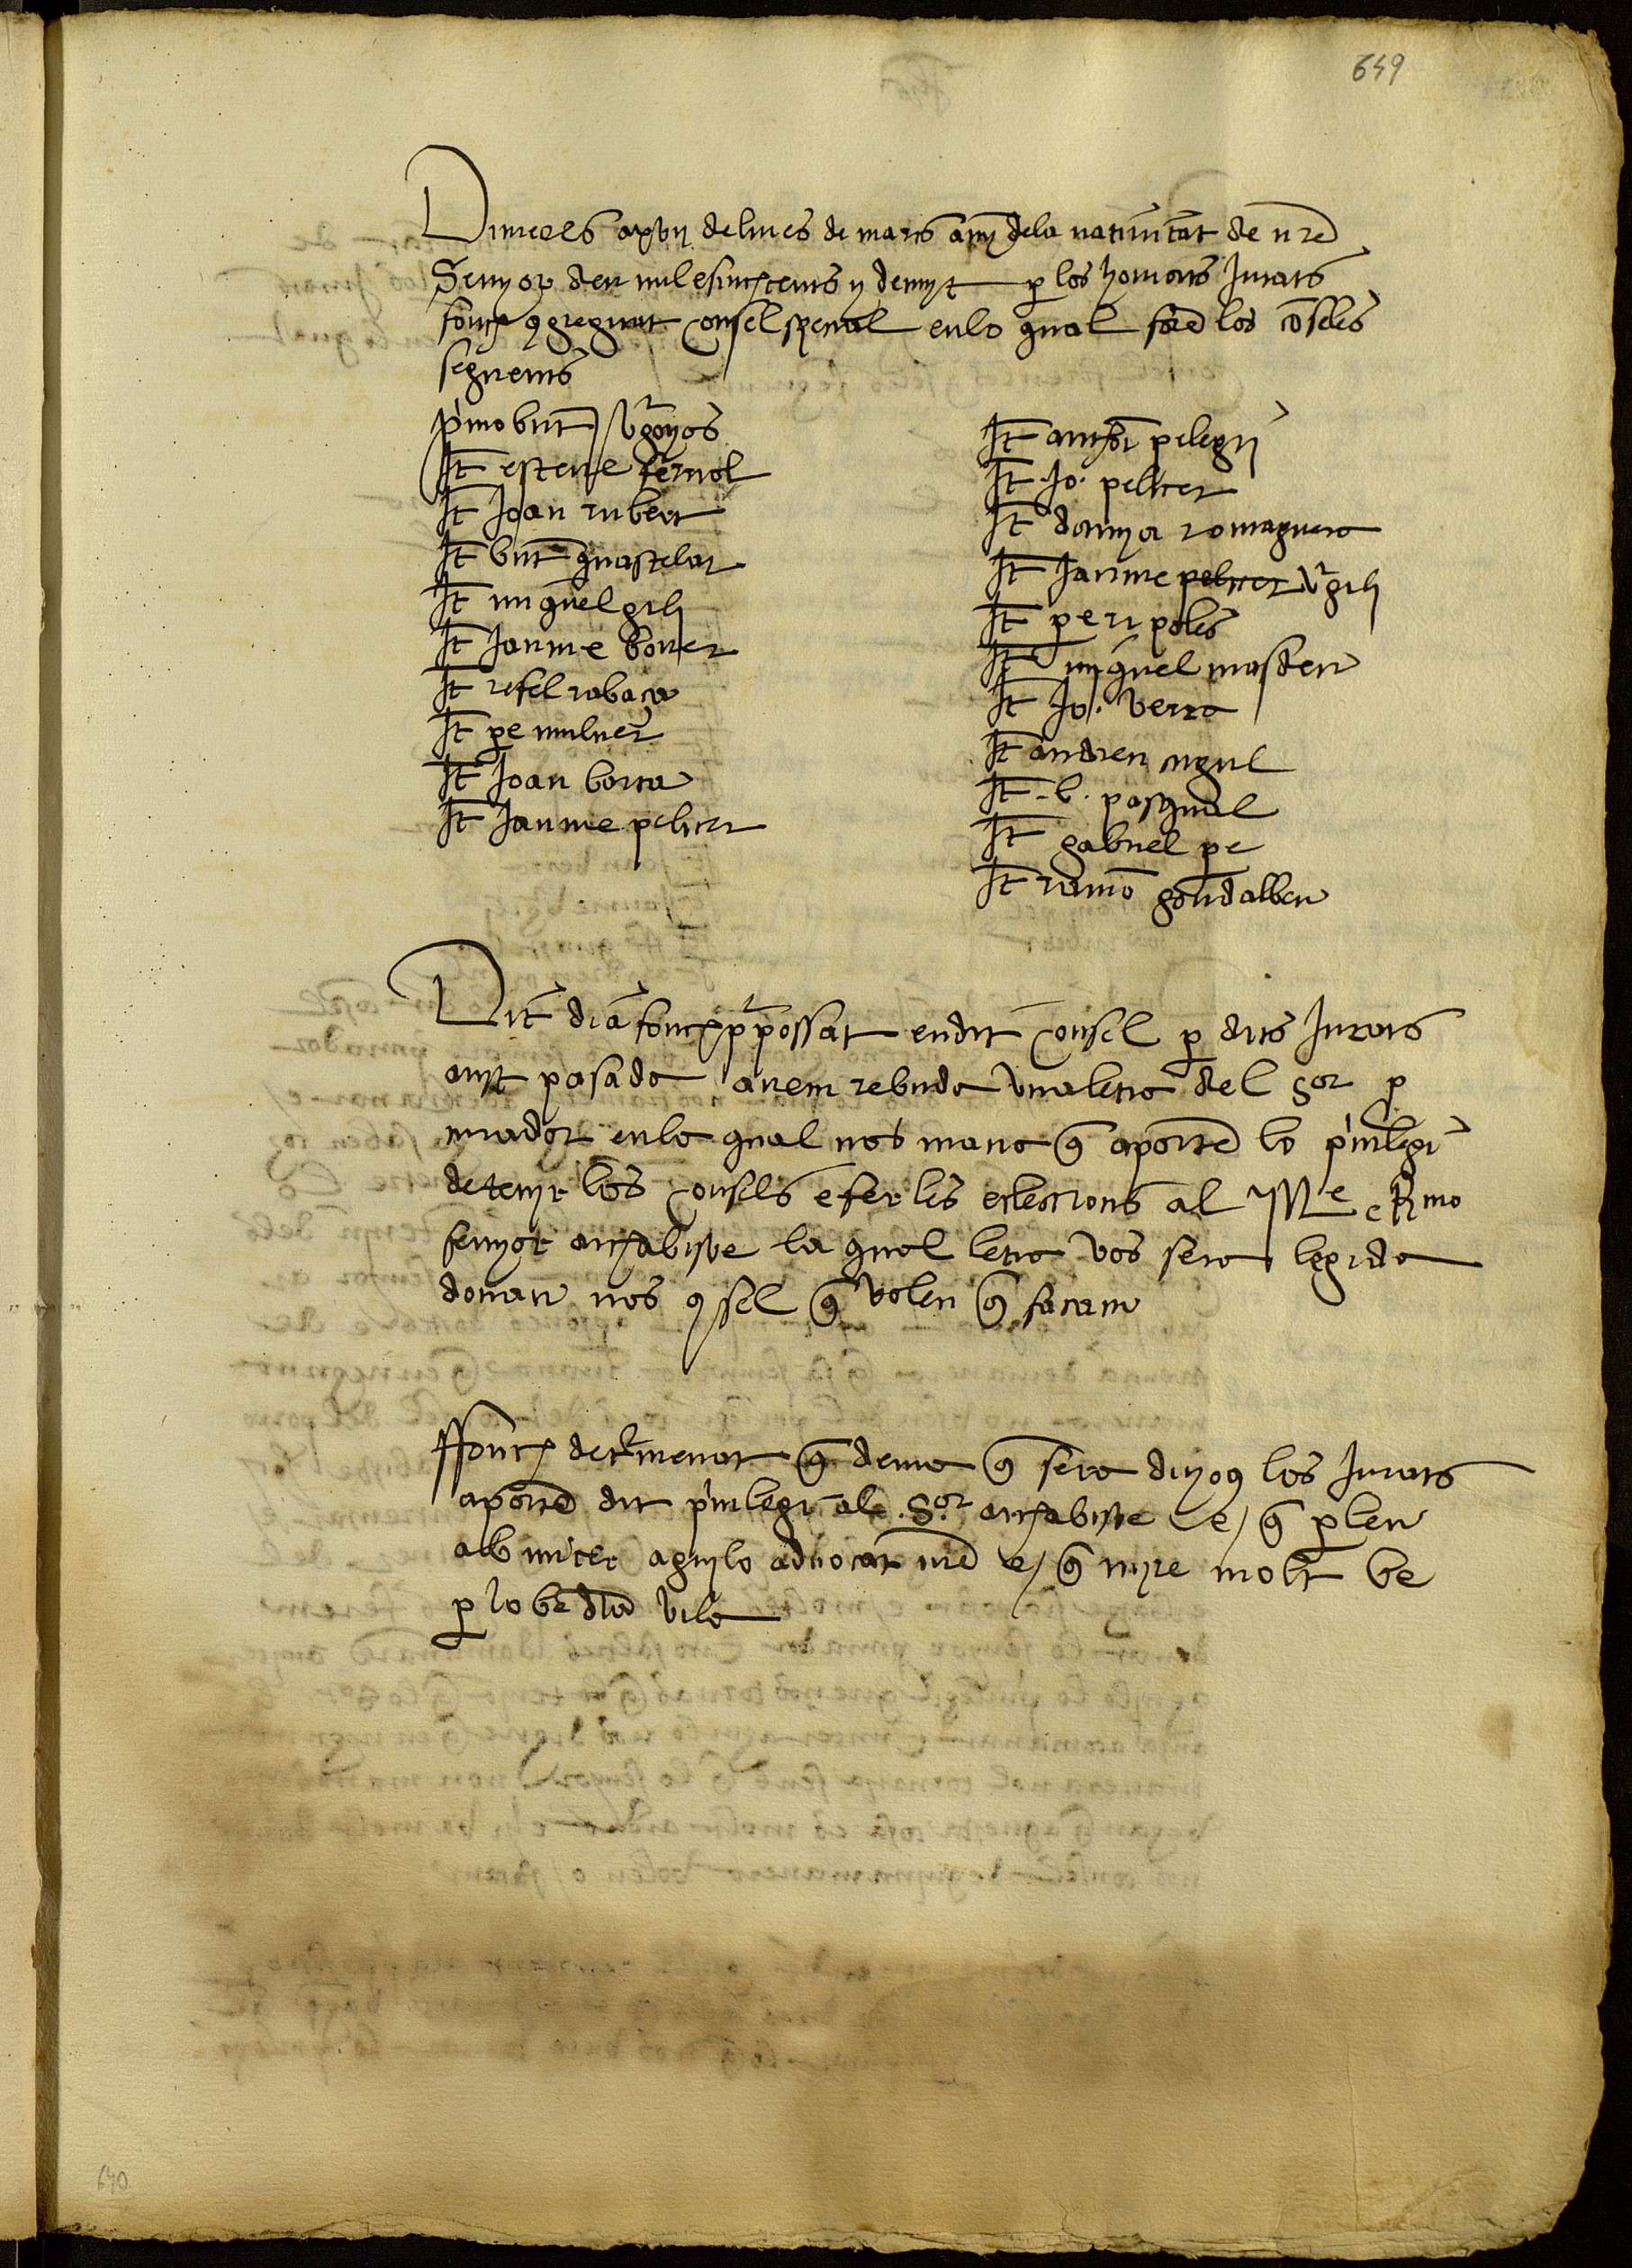 649
Dimecres a xvij del mes de mars any dela natiuitat de nre
Senyor deu mil e sinchcents y de nyt per los honorats Jurats
fonch ꝯgreguat consel special en lo qual foren los cōselés
seguents
primo
It esteue ferriol
It Joan rubert
It guastelar
It miquel gili
It Jaume bouer
It refel rabaça
It pe muluer
It Joan borra
It Jaume peliçer
It anthoni pelegri
It Jo. peliçer
It romaguera
It Jaume peliçer vrgili
It peri poles
It miquel masdeu
It Jo. verra
It andreu cugul
It b. pasqual
It gabriel pe
It ramō gombalbeu
Dit dia fonch proposat en dit consel per dits Jurats
nyt pasada auem rebuda vna letra del Sor pro
curador en la qual nos mana q̄ aportē lo priuilegi
de tenyr los consels e fer les eleccions al Ille e Rmo
senyor archabisbe la qual letra vos sera legida
donau nos ꝯsel q̄ voleu q̄ façam
ffonch determenat q̄ dema q̄ sera dijous los Jurats
aportē dit priuilegi al Sor archabisbe e q̄ parlen
ab miçer aguylo aduocat nrē e q̄ myre molt be
per lo be dla vila
640